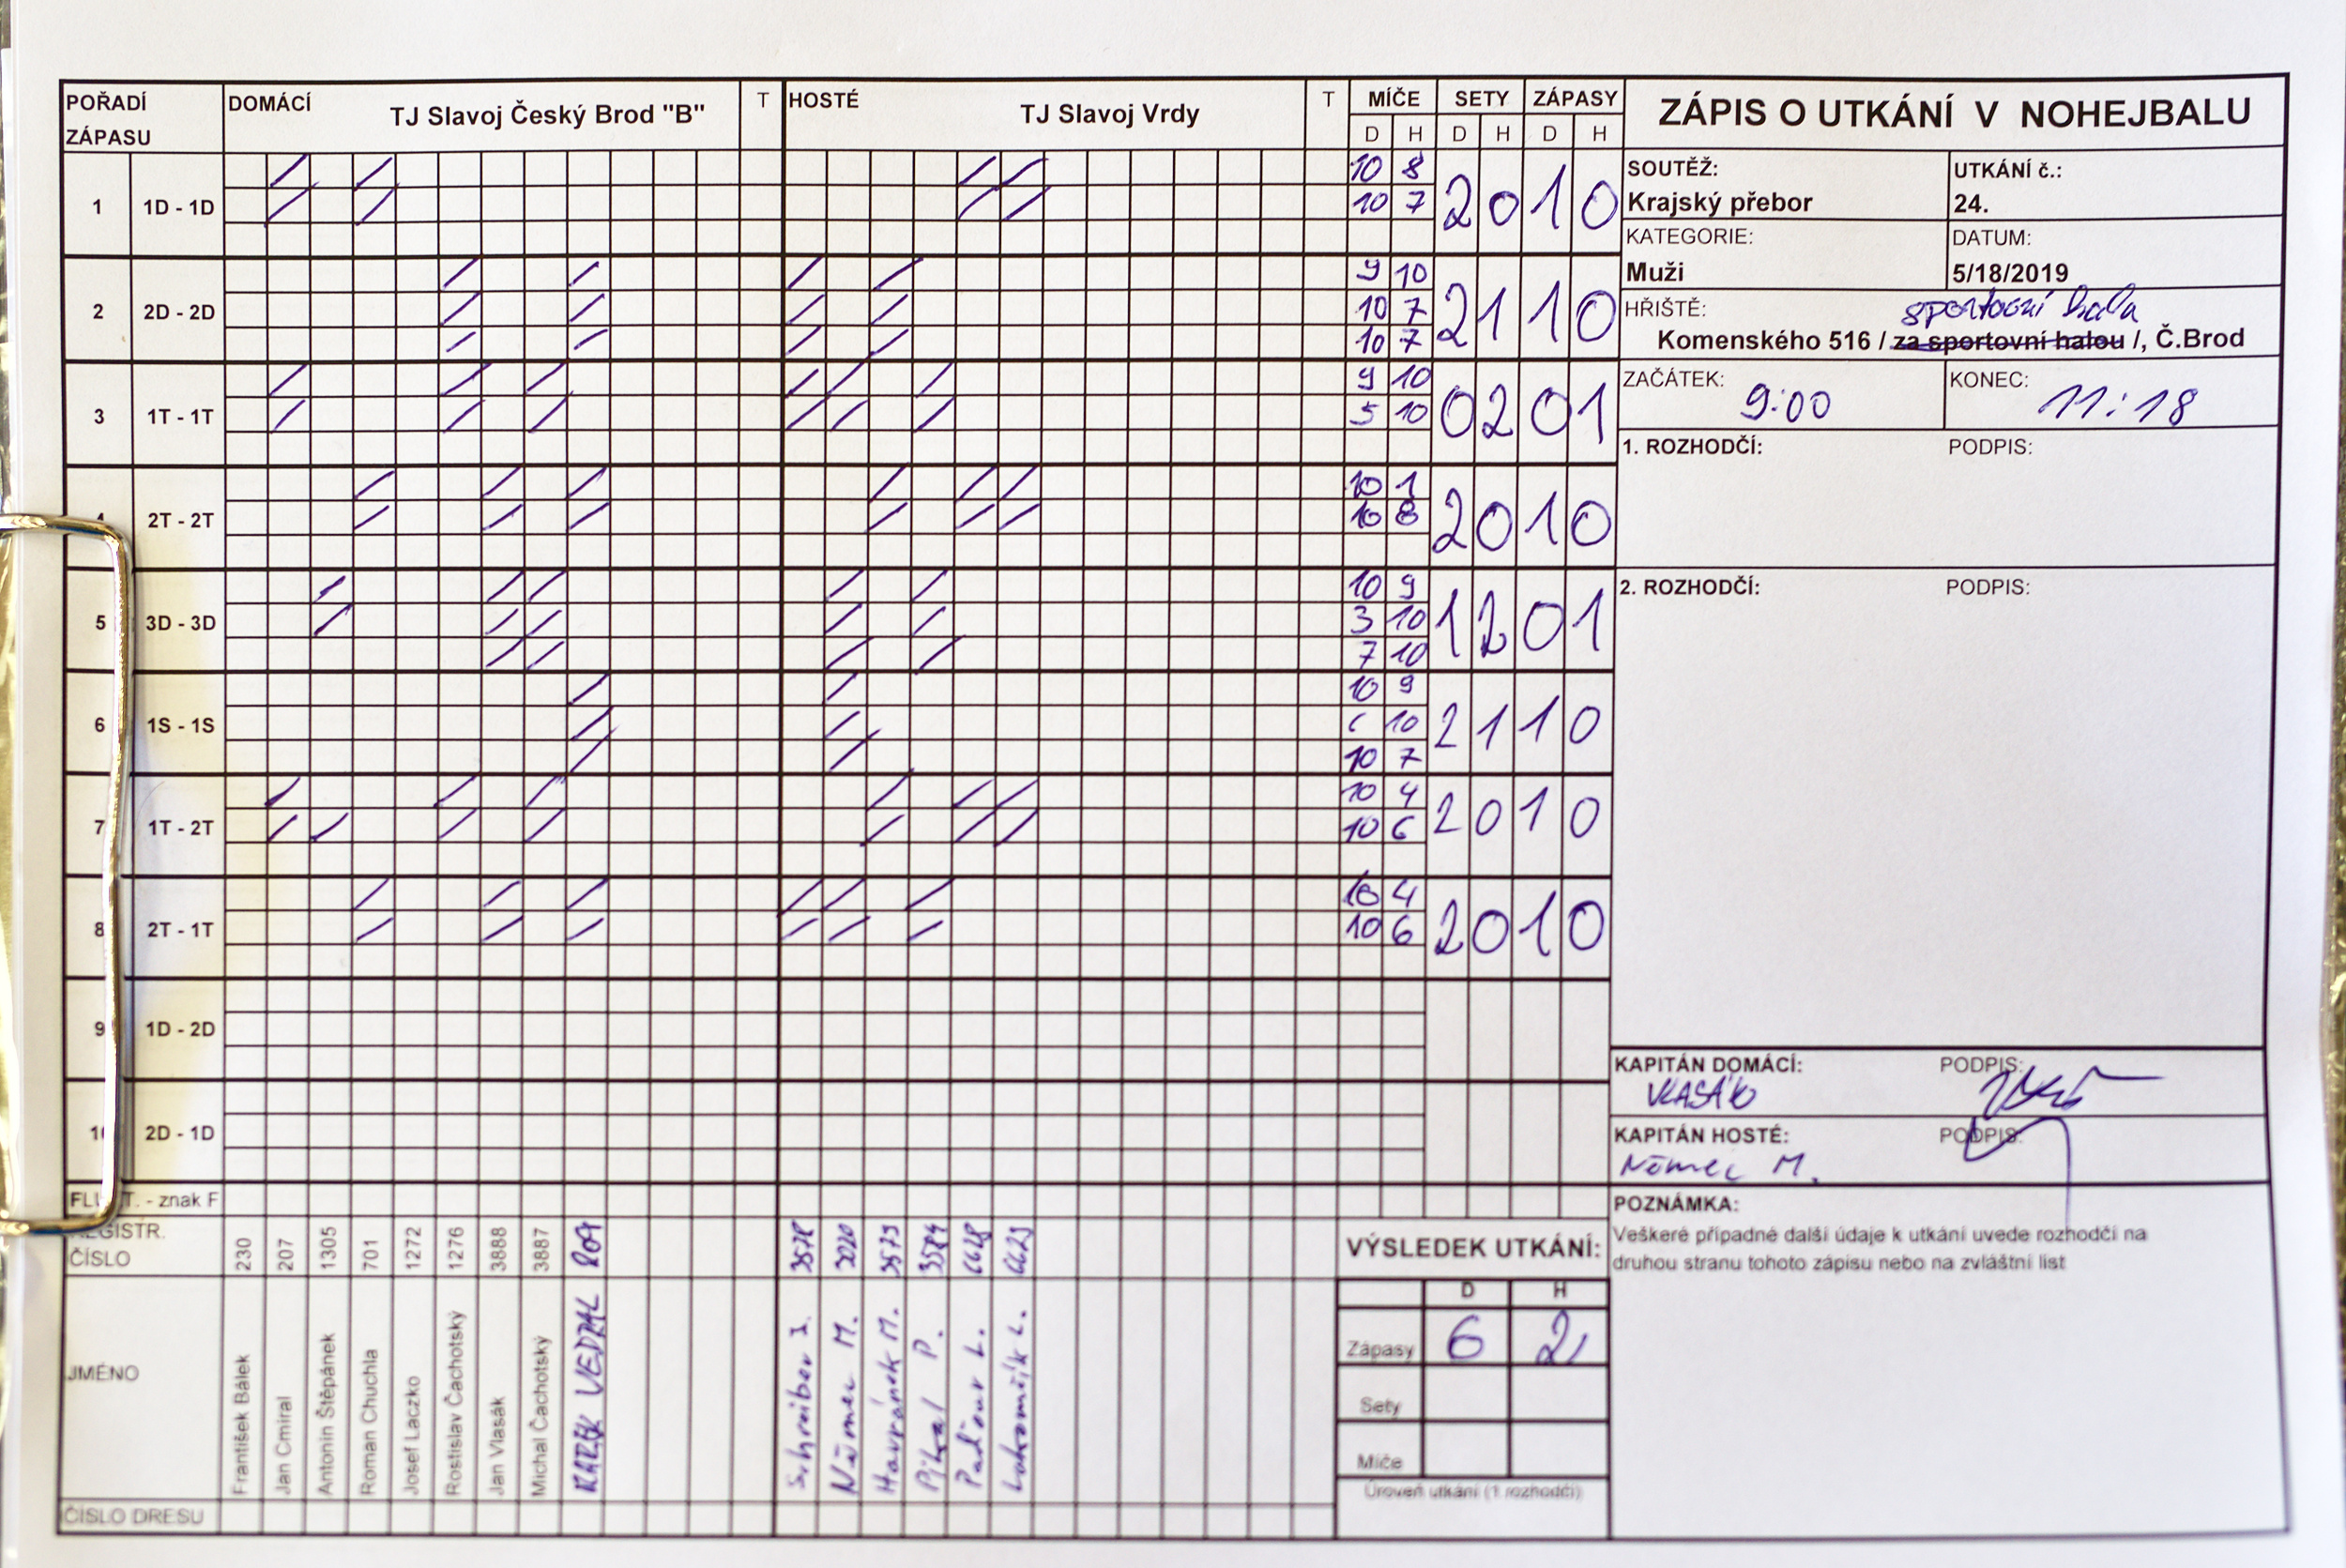 POŘADÍ ZÁPASU DOMÁCÍ TJ Slavoj Český Brod "B" T HOSTÉ TJ Slavoj Vrdy T MÍČE SETY ZÁPASY
D H D H D H
ZÁPIS O UTKÁNÍ V NOHEJBALU
SOUTĚŽ: UTKÁNÍ č.:
Krajský přebor 24.
KATEGORIE: DATUM:
Muži 5/18/2019
HŘIŠTĚ: sportovní hala
Komenského 516 / za sportovní halou /, Č.Brod
ZAČÁTEK: 9:00 KONEC: 11:18
1. ROZHODČÍ: PODPIS:
2. ROZHODČÍ: PODPIS:
1 1D - 1D 10 8 2 0 1 0
10 7
2 2D - 2D 9 10 2 1 1 0
10 7
10 7
3 1T - 1T 9 10 0 2 0 1
5 10
2T - 2T 10 1 2 0 1 0
10 8
5 3D - 3D 10 9 1 2 0 1
3 10
7 10
6 1S - 1S 10 9 2 1 1 0
10
10 7
7 1T - 2T 10 4 2 0 1 0
10 6
8 2T - 1T 10 4 2 0 1 0
10 6
9 1D - 2D
2D - 1D
KAPITÁN DOMÁCÍ: PODPIS:
VLASÁK
KAPITÁN HOSTÉ: PODPIS:
Němec M.
- znak F
REGISTR. ČÍSLO 230 207 1305 701 1272 1276 3888 3887 3578 3020 3579 6628 6629
JMÉNO František Bálek Jan Cmiral Antonín Štěpánek Roman Chuchla Josef Laczko Rostislav Čachotský Jan Vlasák Michal Čachotský MAREK VEDRAL Schreiber J. Němec M. Havránek M. Pikal P. Paďour L. L.
ČÍSLO DRESU
VÝSLEDEK UTKÁNÍ:
D H
Zápasy 6 2
Sety
Míče
Úroveň utkání (1.rozhodčí)
POZNÁMKA:
Veškeré případné další údaje k utkání uvede rozhodčí na
druhou stranu tohoto zápisu nebo na zvláštní list